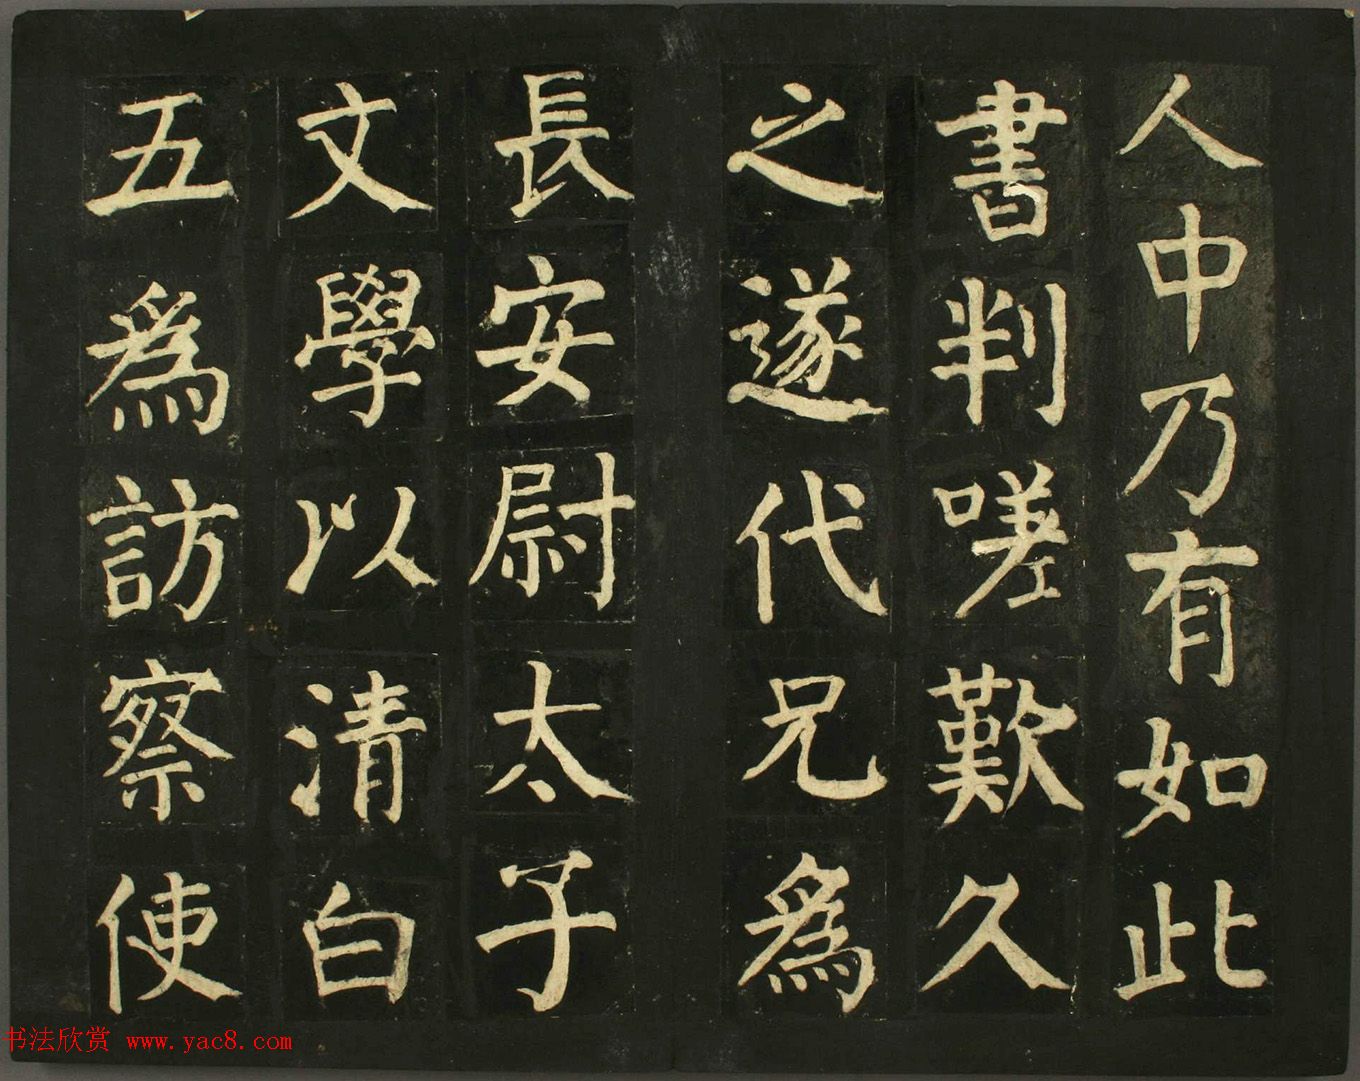 人中乃有如此
書判嗟歎久
之遂代兄為
長安尉太子
文學以清白
五為訪察使
书法欣赏 www.yac8.com